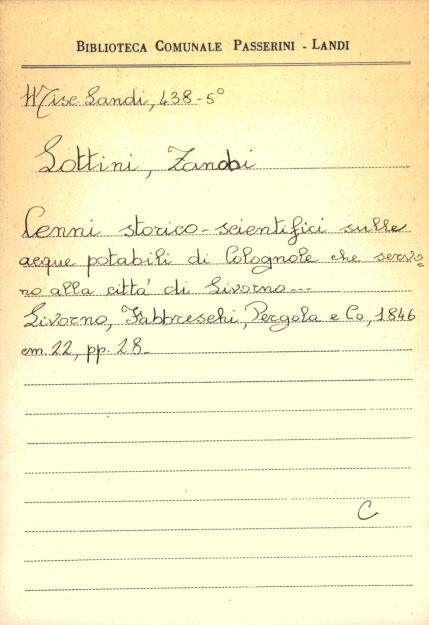 BIBLIOTECA COMUNALE PASSERINI - LANDI
Misc. Landi, 438-5°
Lottini, Zanobi
Cenni storico-scientifici sulle
acque potabili di Colognole che servo=
no alla città di Livorno...
Livorno, Fabbreschi, Pergola e Co, 1846
cm. 22, pp. 28.
C